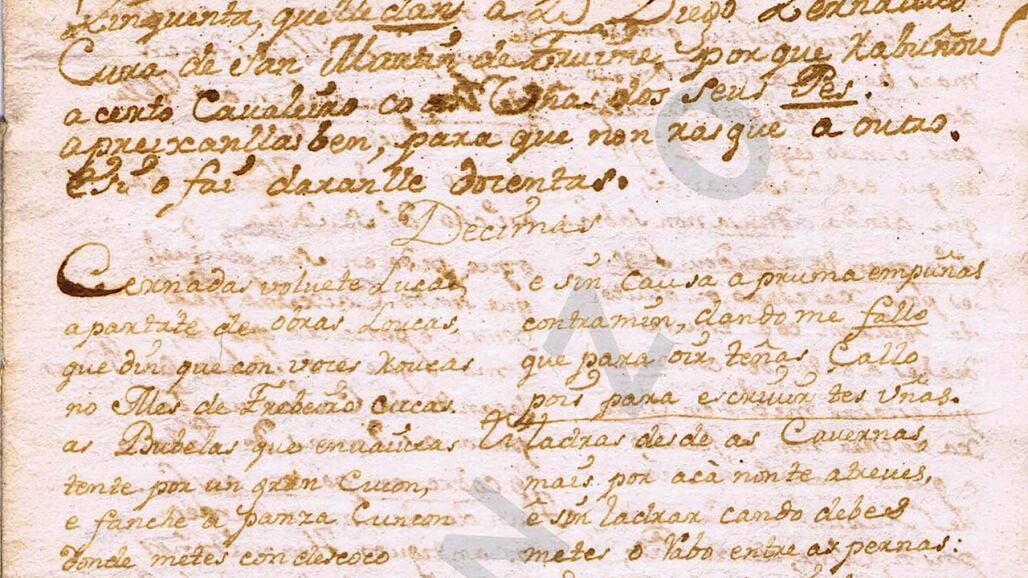 Zinquenta, que lle dans a D. Diego Zernadas
Cura de San Martin de Fruime, porque rabuñou
a certo Cavaleiro co as Uñas dos seus Pes.
apreixanllas ben, para que non rasque a outro.
e si o fai daranlle docentas.
Decimas
Cernadas volvete Lucas,
apartate de obras Loucas,
que din que con voces Roucas
no Mes de Frebeiro cucas.
as Bubelas que
tente por un gran Cucon,
e fanche a panza Cuncon
donde metes con descoco
e sin causa a pruma empuñas
contra min, dando me fallo
que para oir teñas Callo
pois para escrivir tes uñas.
Ladras desde as Cavernas,
mais por acà non te atreves,
e sin ladrar cando debes
metes o Rabo entre as pernas: